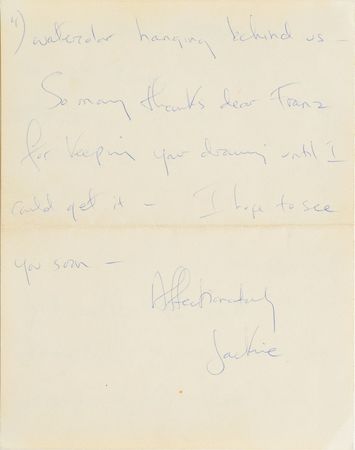 4) watercolor hanging behind us —
So many thanks dear Franz
for keeping your drawing until I
could get it — I hope to see
you soon —
Affectionately
Jackie